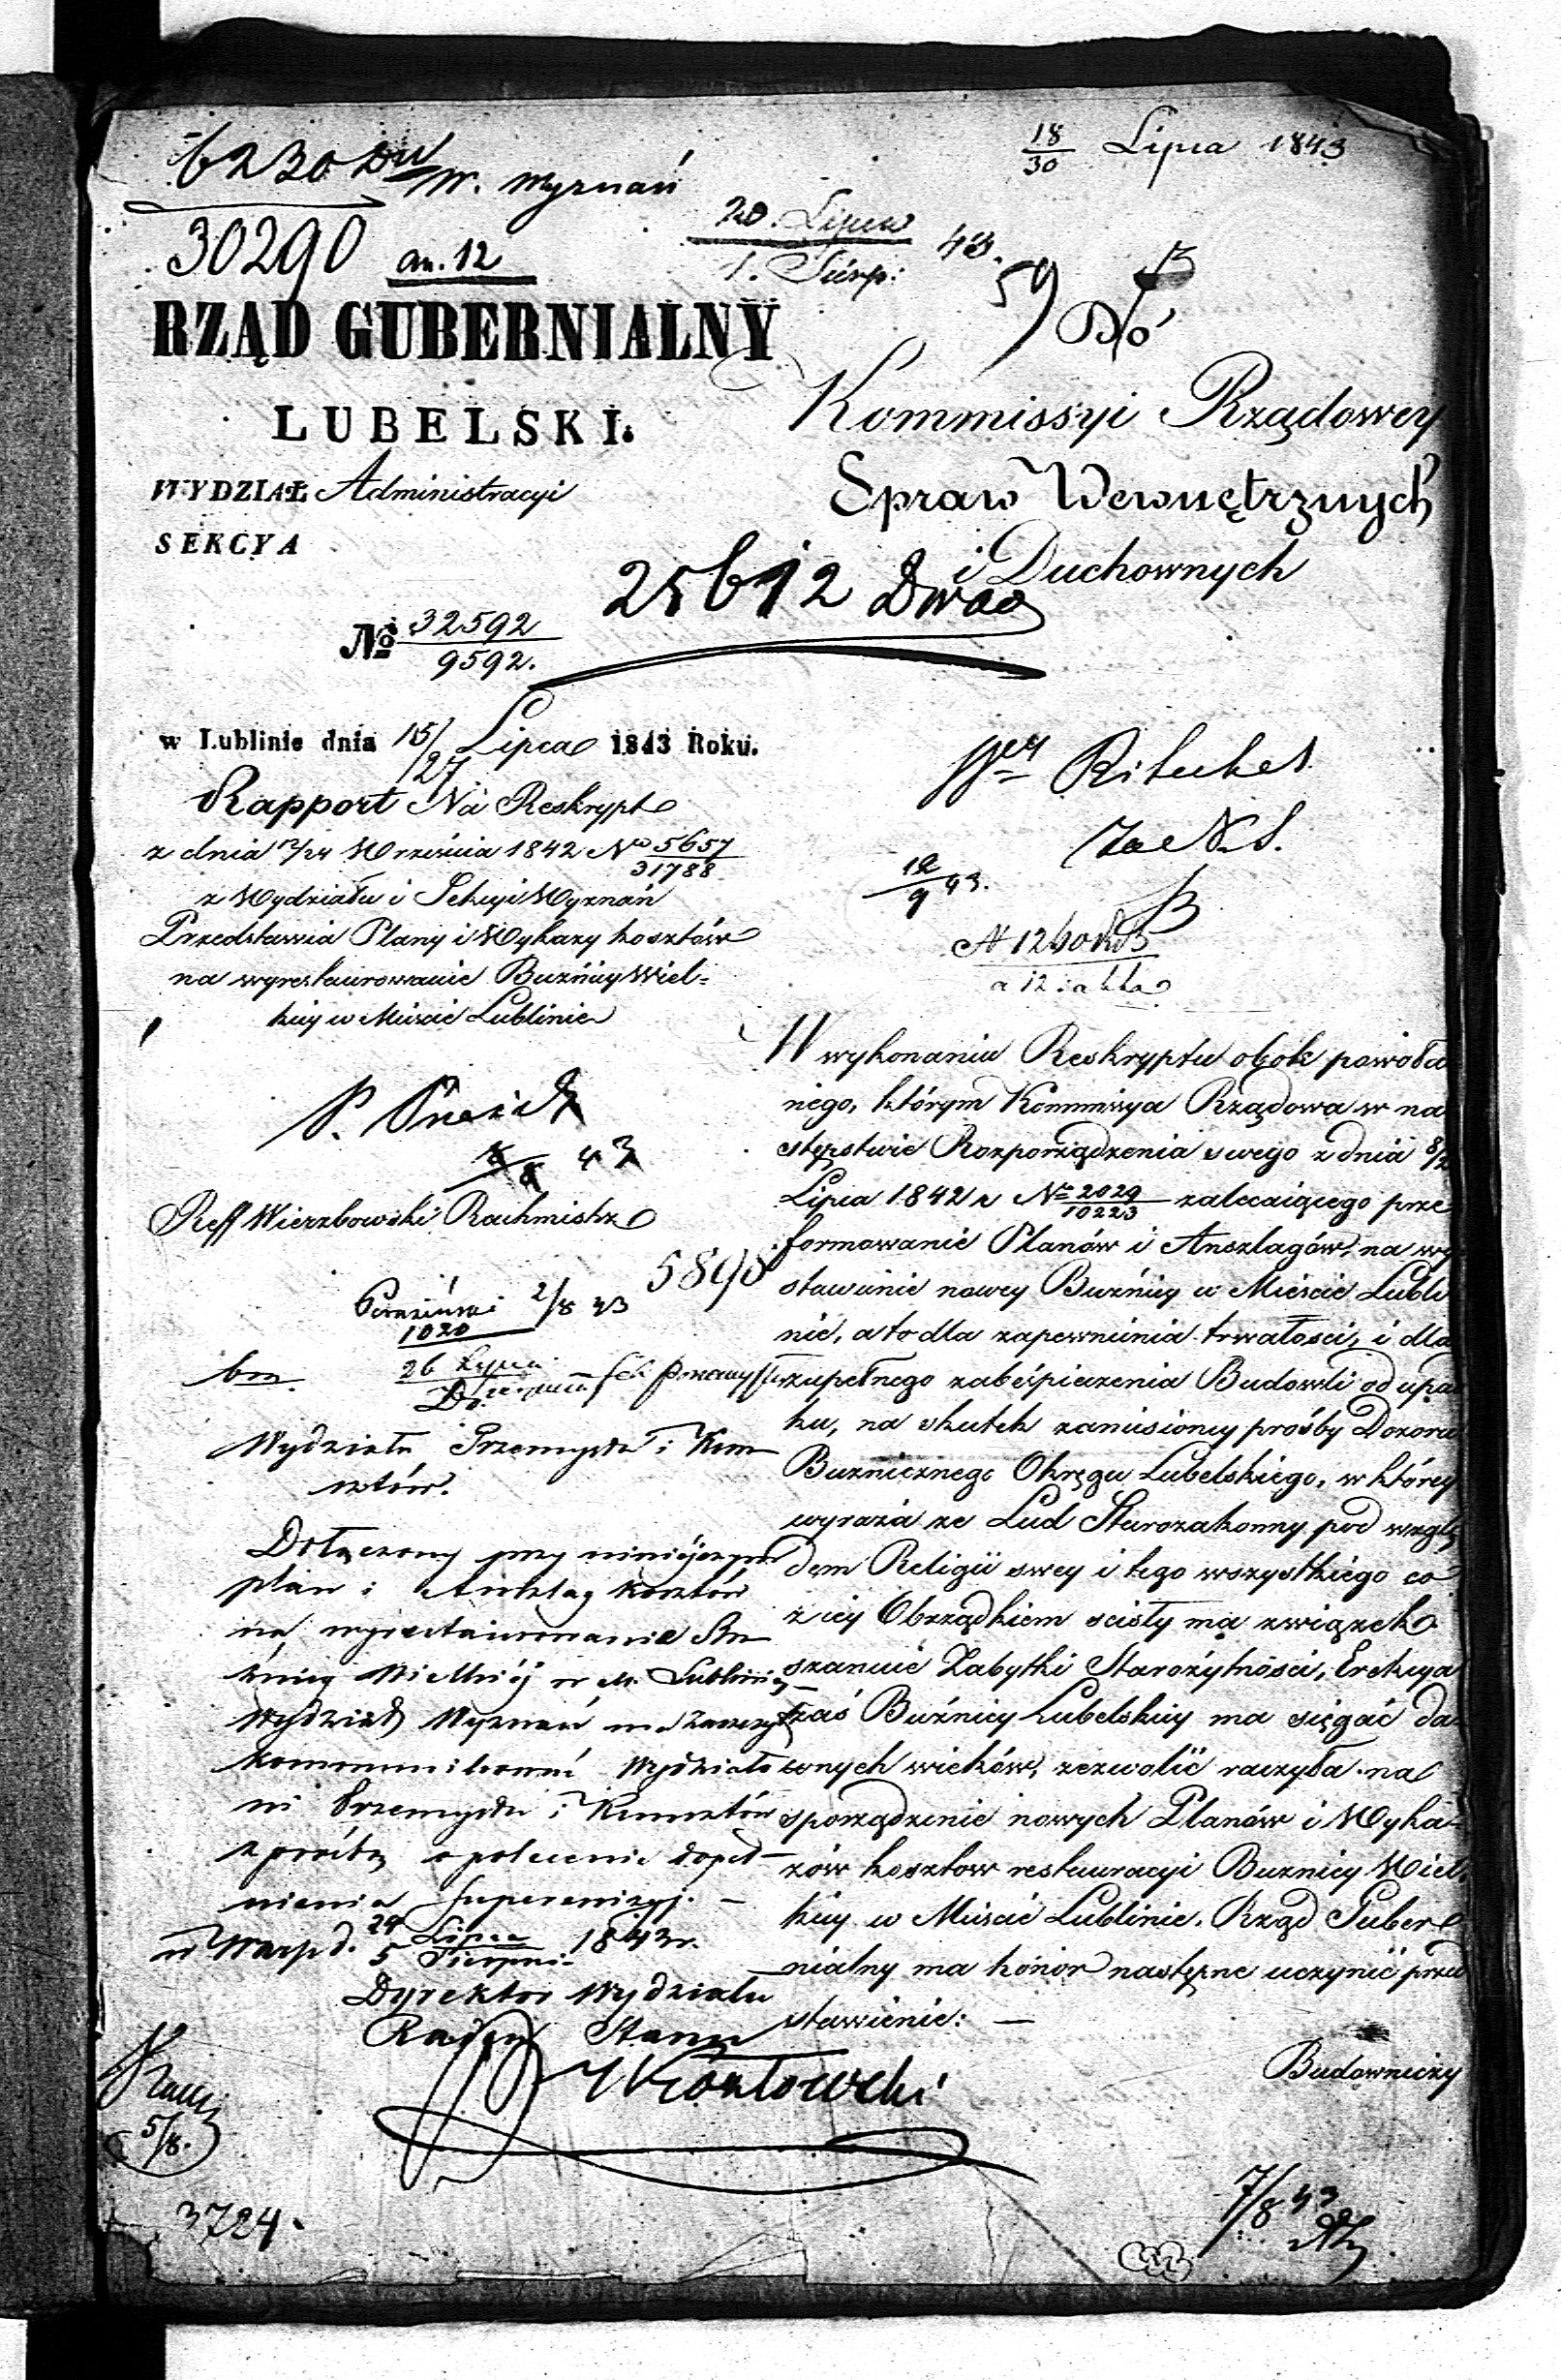 18/30 Lipca 1843
6230
W. Wyznań
30290 an. 12
20. Lipca
1. Sierp: 43.
59
RZĄD GUBERNIALNY
LUBELSKI.
WYDZIAŁ Administracyi
SEKCYA
№ 32592/9592.
w Lublinie dnia 15/27 Lipca 1843 Roku.
Rapport Na Reskrypt
z dnia 12/24 Września 1842 No 5657/31788
z Wydziału i Sekcyi Wyznań
Przedstawia Plany i Wykazy kosztów
na wyrestaurowanie Buźnicy Wiel-
kiey w Mieście Lublinie
43
Reff Wierzbowski Rachmistrz
5898
2/8 43
1020
26 Lipca
Do
Wydziału Przemysłu i Kun-
sztów.
Dołączony przy niniejszym
plan i Anszlag kosztów
na wyrestaurowanie Bu-
źnicy Wielkiéj w M. Lublinie
Wydział Wyznań ma zaszczyt
kommunikować Wydziało-
wi Przemysłu i Kunsztów
z prośbą o polecenie dopeł-
nienia superrewizyi. —
w Warsz d. 24 Lipca/5 Sierpnia 1843 r.
Dyrektor Wydziału
Radca Stanu
5/8.
3724.
Do
Kommissyi Rządowey
Spraw Wewnętrznych
i Duchownych
25612
12/9 43.
W wykonaniu Reskryptu obok powoła
nego, którym Kommissya Rządowa w na
stępstwie Rozporządzenia swego z dnia 8/
Lipca 1842 r No 2029/10223 zalecaiącego prze
formowanie Planów i Anszlagów, na wy
stawienie nowey Buźnicy w Mieście Lubli
nie, a to dla zapewnienia trwałości, i dla
zupełnego zabeśpieczenia Budowli od upad
ku, na skutek zaniesioney prośby Dozoru
Buźnicznego Okręgu Lubelskiego, w którey
wyraża ze Lud Starozakonny pod wzglę
dem Religii swey i tego wszystkiego co
z iey Obrządkiem ścisły ma związek
szanuie Zabytki Starożytności, Erekcya
zaś Buźnicy Lubelskiey ma sięgać da
wnych wieków, zezwolić raczyła na
sporządzenie nowych Planów i Wyka-
zów kosztow restauracyi Buznicy Wiel-
kiey w Mieście Lublinie. Rząd Guber
nialny ma honor następne uczynić przed
stawienie: —
Budowniczy
7/8 43